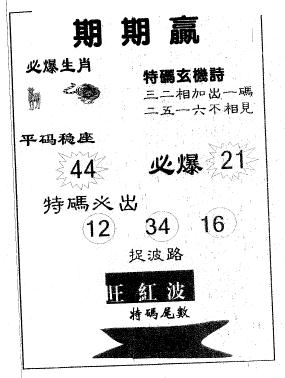 期期赢
必爆生肖
特碼玄機詩
三二相加出一碼
二五一六不相見
平码稳座
44
必爆 21
特碼必出
12 34 16
捉波路
旺紅波
特碼尾數